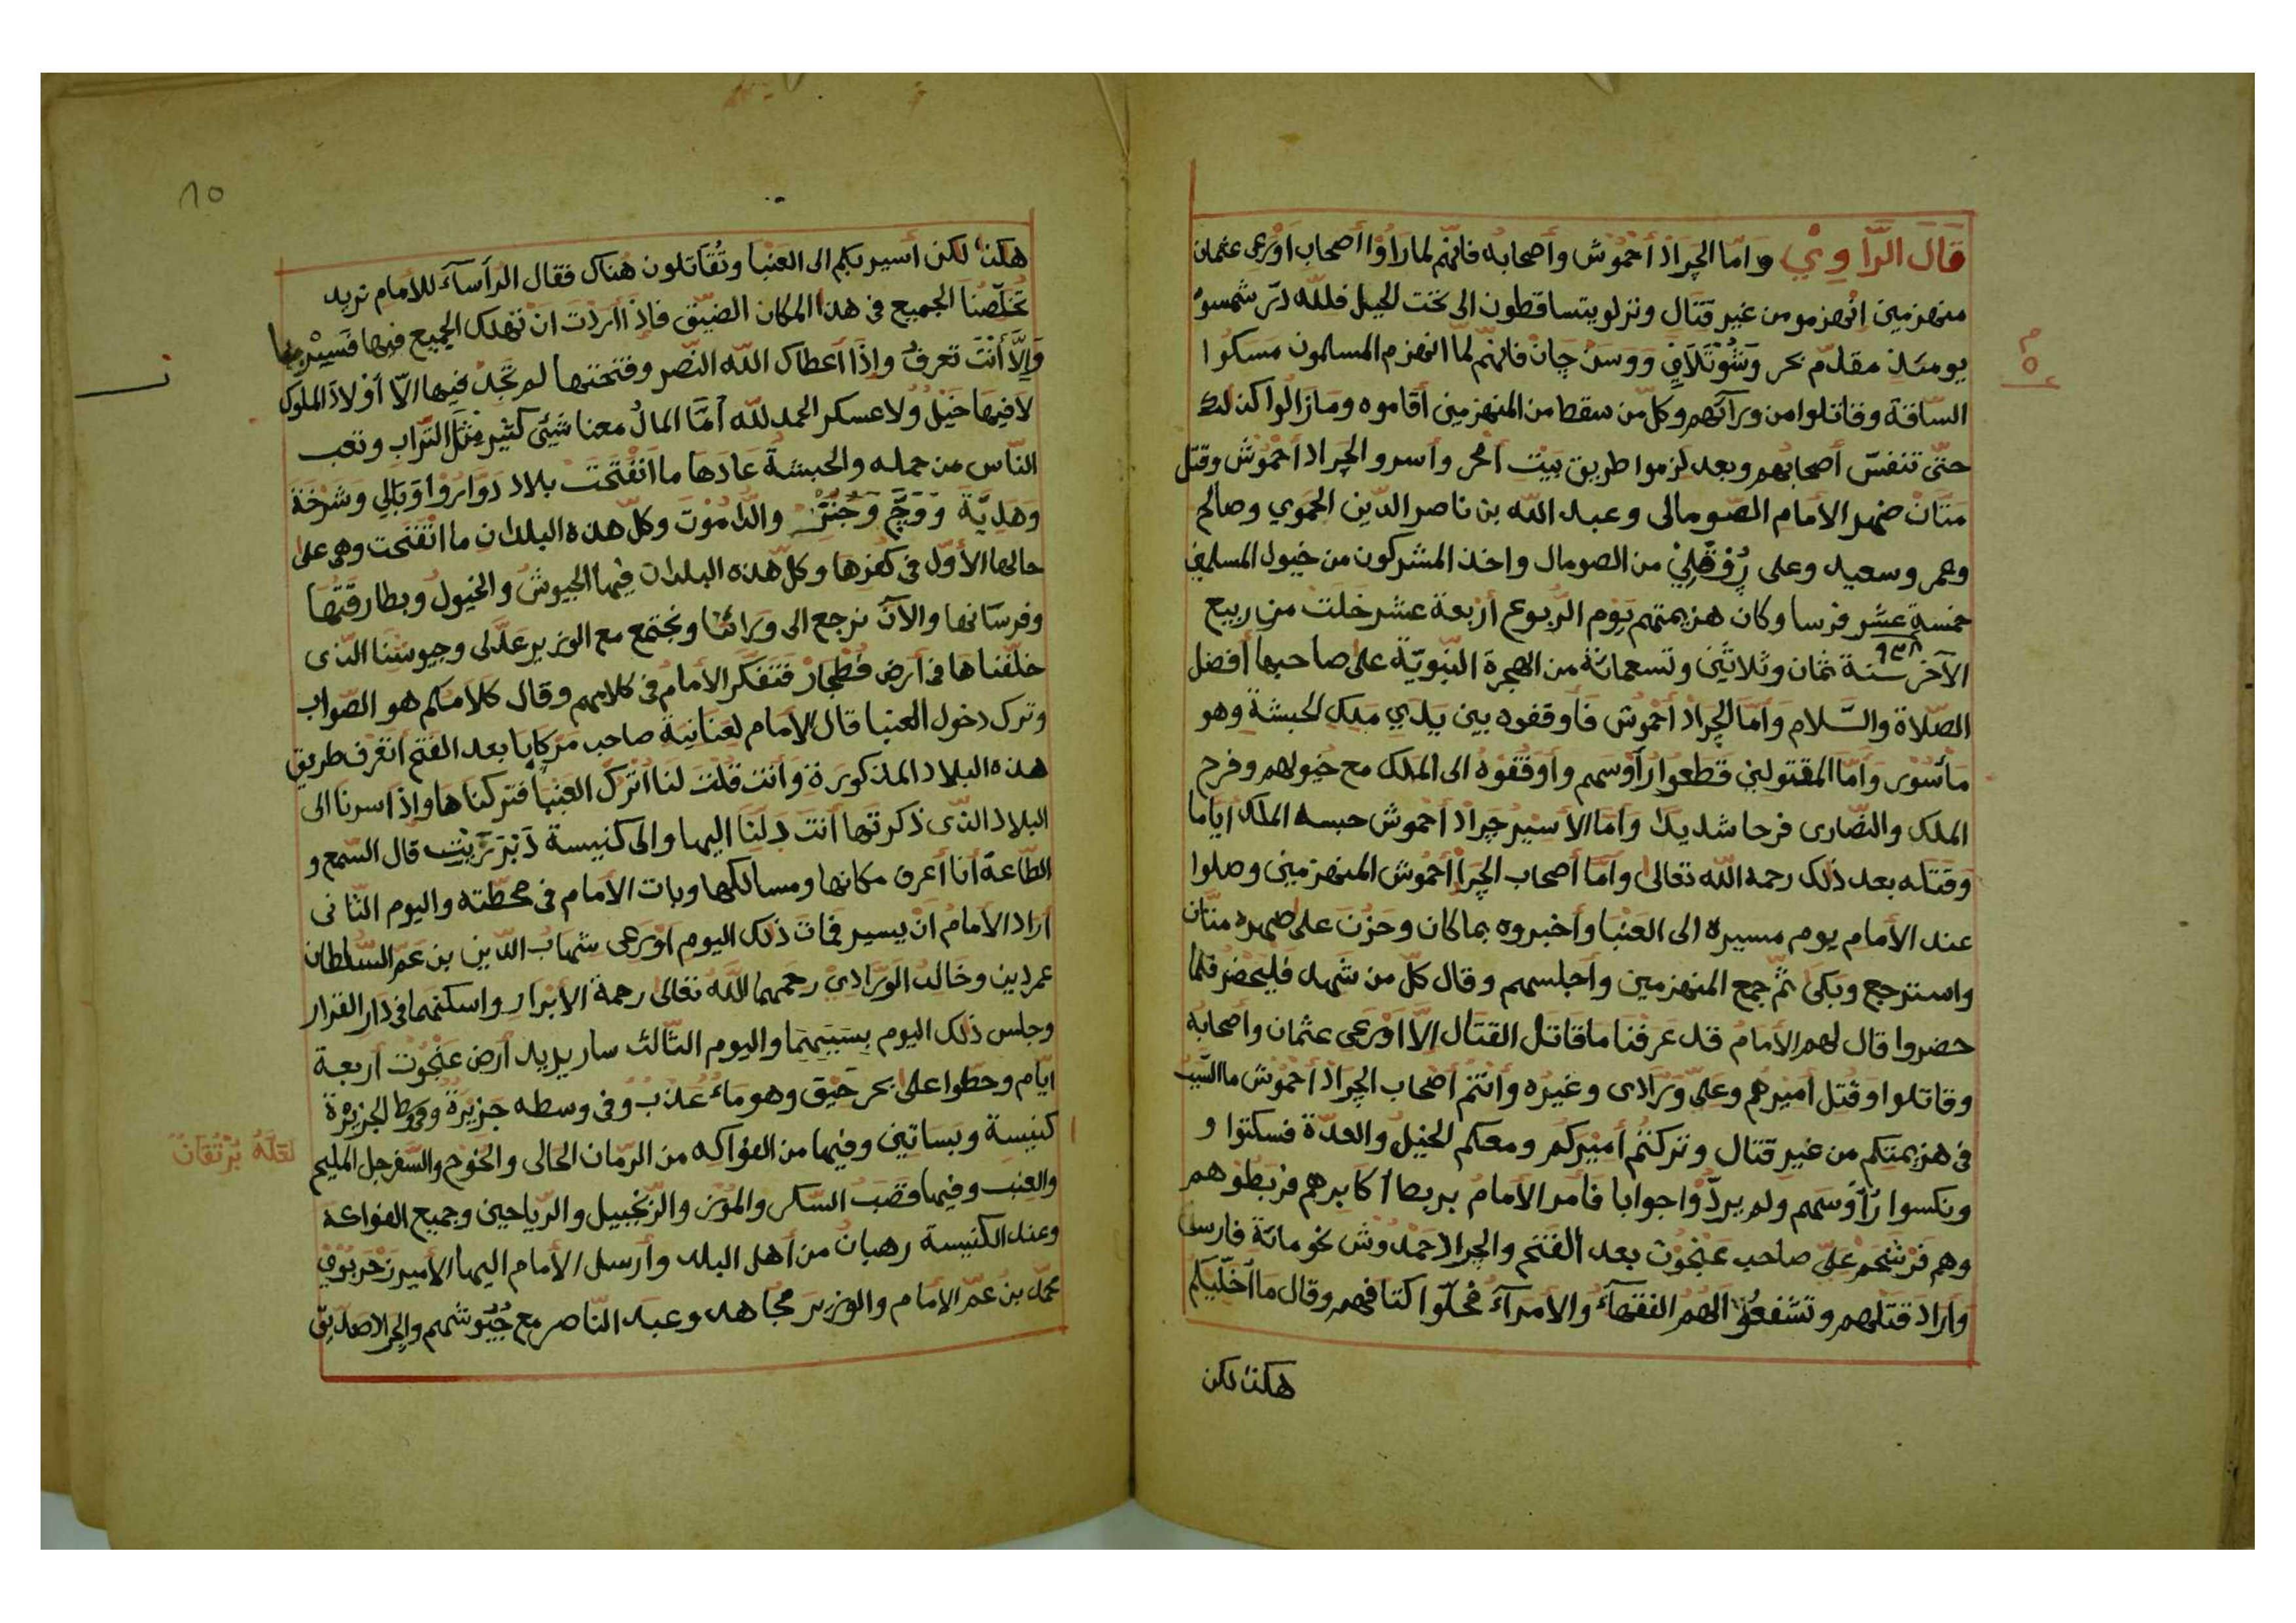 قَالَ الرَّاوِيْ وامّا الجراد أحْمُوْش وأصحابه فانّهم لما رَاَوْا أصحاب اوْرَعى عثمان
منهزمين انهزمو من غير قتَال ونزلو يتساقطون الى تحت الجبل فللّه درّ شمسوْ
يومئذ مقدّم نحر وَشُوْتَلَافِ ووسَنْ جَانْ فانّهم لمّا انهزم المسلمون مسكوا
السّاقة وقاتلوا من ورآئهم وكلّ من سقط من المنهزمين أقاموه ومَازالُوا كذلك
حتّى تنفسّ أصحابهم وبعد لزموا طريق بَيْت أمحر وأسرو الجراد أحْمُوْش وقتل
مَتَانْ ضهر الأمام الصّومالى وعبد اللّه بن ناصر الدّين الحموي وصالح
وعمر وسعيد وعلى رُوْقَلِيْ من الصومال واخذ المشركون من خيول المسلمين
خمسة عشر فرسا وكان هزيمتهم يَوْم الرّبوع أرْبعة عشر خلَت من ربيع
الآخر سنة ٩٣٨ ثمان وثلاثين وتسعمائة من الهجرة النّبويّة على صاحبها أفضل
الصّلاة والسّلام وَامّا الجراد أحْمُوش فَأوقفوه بين يَدَي مَلِكِ الحبشة وهو
مَأسُوْر وَامّا المقتولين قَطعوا رَأوْسهم وأوقَفوْهُ الى الملك مع خيولهم وفرح
الملك والنصّارى فرحا شديدا وَامّا الأسيْر جراد أحْمُوش حبسه الملك أيّاما
وَقتله بعد ذلك رحمه اللّه تعالى وامّا أصحاب الجراد أحْمُوش المنهزمين وصلوا
عند الأمام يوم مسيره الى العَنْبا وأخبروه بما كان وحَزِنَ على ضهره متّان
واسترجع وبَكَى ثمّ جمع المنهزمين وأجلسهم وقال كلّ من شهد فليحضر فلمّا
حضروا قال لهم الأمام قد عَرفنا ما قاتل القتال إلّا اَوْرَعى عثمان وأصحابه
وقاتلوا وقُتل أميرهم وعَلى وَرَادى وغيره وأنْتم أصْحاب الجراد أحْمُوْش ما السّبب
فى هزيمتكم من غير قتال وتركتُم أميركم ومعكم الخيل والعدّة فسكتوا و
ونكسوا رَأوْسهم ولم يردّوْا جوابا فَأمر الأمام بربط أكابرهم فربَطُوْهم
وهم فَرْشَحم عَلِيّ صاحب عَنْجُوْت بعد الفَتح والجراد حَمْدُوْش نحو مائة فارس
وَأرَادَ قتلهم وتشَفعُوْا لهم الفقهآءُ والأمرآءُ فحلّوا كتافهم وقال ما أخلّيكم
هكذا لكن
١٥
هكذا لكن أسير بكم الى العَنْبا وتُقَاتلون هُناك فقال الرأسآءَ للأمام تريد
تُخَلّصُنا الجميع فى هذا المكان الضّيّق فإذَا أردْت ان تهلك الجميع فيها فَسِيْر بنا
وَإلَّا أنْتَ تعرفُ وإذَا أعطاك اللّه النّصر وفتحتها لم تَجْدُ فيها الّا أوْلادُ الملوك
لا فيهَا خَيْلُ ولا عسكر الحمد للّه أمّا المالُ معنا شَيْئى كثير مثْلَ التّراب وتعب
النّاس من حمله والحبشة عَادَهَا ما انْفتحَتْ بلاد دَوَارُوْا وَبَالِي وَشَرْخَة
وَهَدِيَّة وَوَجّ وَجَنْزْ والدَّامُوْت وكلّ هذه البلدان ما انْفتَحت وهى على
حالها الأوّل فى كفرها وكلّ هذه البلدان فيها الجيوش والخيول وبطارقتُها
وفرسَانها والآن نرجع الى وَرَائنا ونجتمع مع الوزير عدلى وجيوشنا الذى
خلّفناها فى أرض فَطَجَار فَتفكّر الأمام فى كلامهم وقال كلامُكم هو الصّواب
وترك دخول العنبا قال الأمام لعَنانيَة صاحب مَرْكايَا بعد الفتح أتعْرف طريق
هذه البلاد المذكورة وَأنت قلت لنا اتْرك العَنْبا فتركناها وإذا سرنا الى
البلاد الذّى ذكرتها أنتَ دلّنا اليها والى كنيسة دَبْر بَرْيْت قال السّمع و
الطّاعة أنا أعرف مكانها ومسالكها وبات الأمام فى محطّته واليوم الثّانى
أراد الأمامُ انْ يسير فمات ذلك اليوم اوْرَعى شهابُ الدّين بن عمّ السّلطان
عمردين وخَالد الوَرَادِيّ رحمهما اللّهُ تعَالى رحمةَ الأبْرار واسكنهما فى دَار القرَار
وجلس ذلك اليوم بسَبَبهمَا واليوم الثّالث سار يريد أرض عَنْجُوْت أربعة
ايّام وحطوا على بحر حَيْق وهو ماءُ عَذبُ وفى وسطه جَزيْرةُ ووسط الجزيْرة
كنيسة وبسَاتين وفيها من الفوَاكه من الرّمان الحالى والخوْخ والسَّفرجل المليم
والعِنب وفيها قصَبُ السّكر والمُوْز والزّنجبيل والرّياحين وجميع الفواكه
وعند الكنيسة رهبانُ من أهل البلد وأرسل الأمام اليها الأمير زَحَربُوْي
محمّد بن عمّ الأمام والوزير مجاهد وعبَد النّاصر مع جُيُوْشهم والجراد صديق
لعَلّهُ بُرْتُقَان